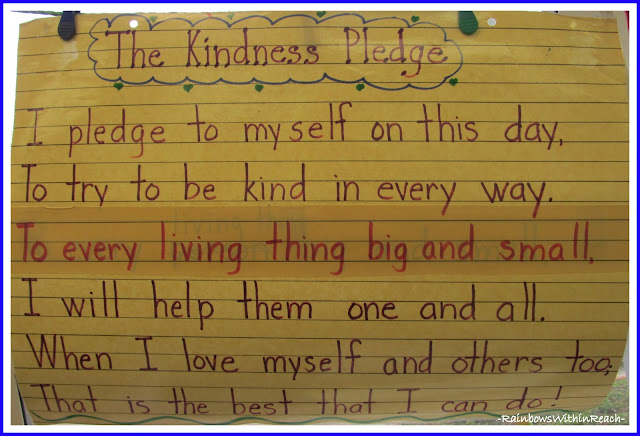 The Kindness Pledge
I pledge to myself on this day,
To try to be kind in every way.
To every living thing big and small,
I will help them one and all.
When I love myself and others too;
That is the best that I can do!
-RainbowsWithinReach-